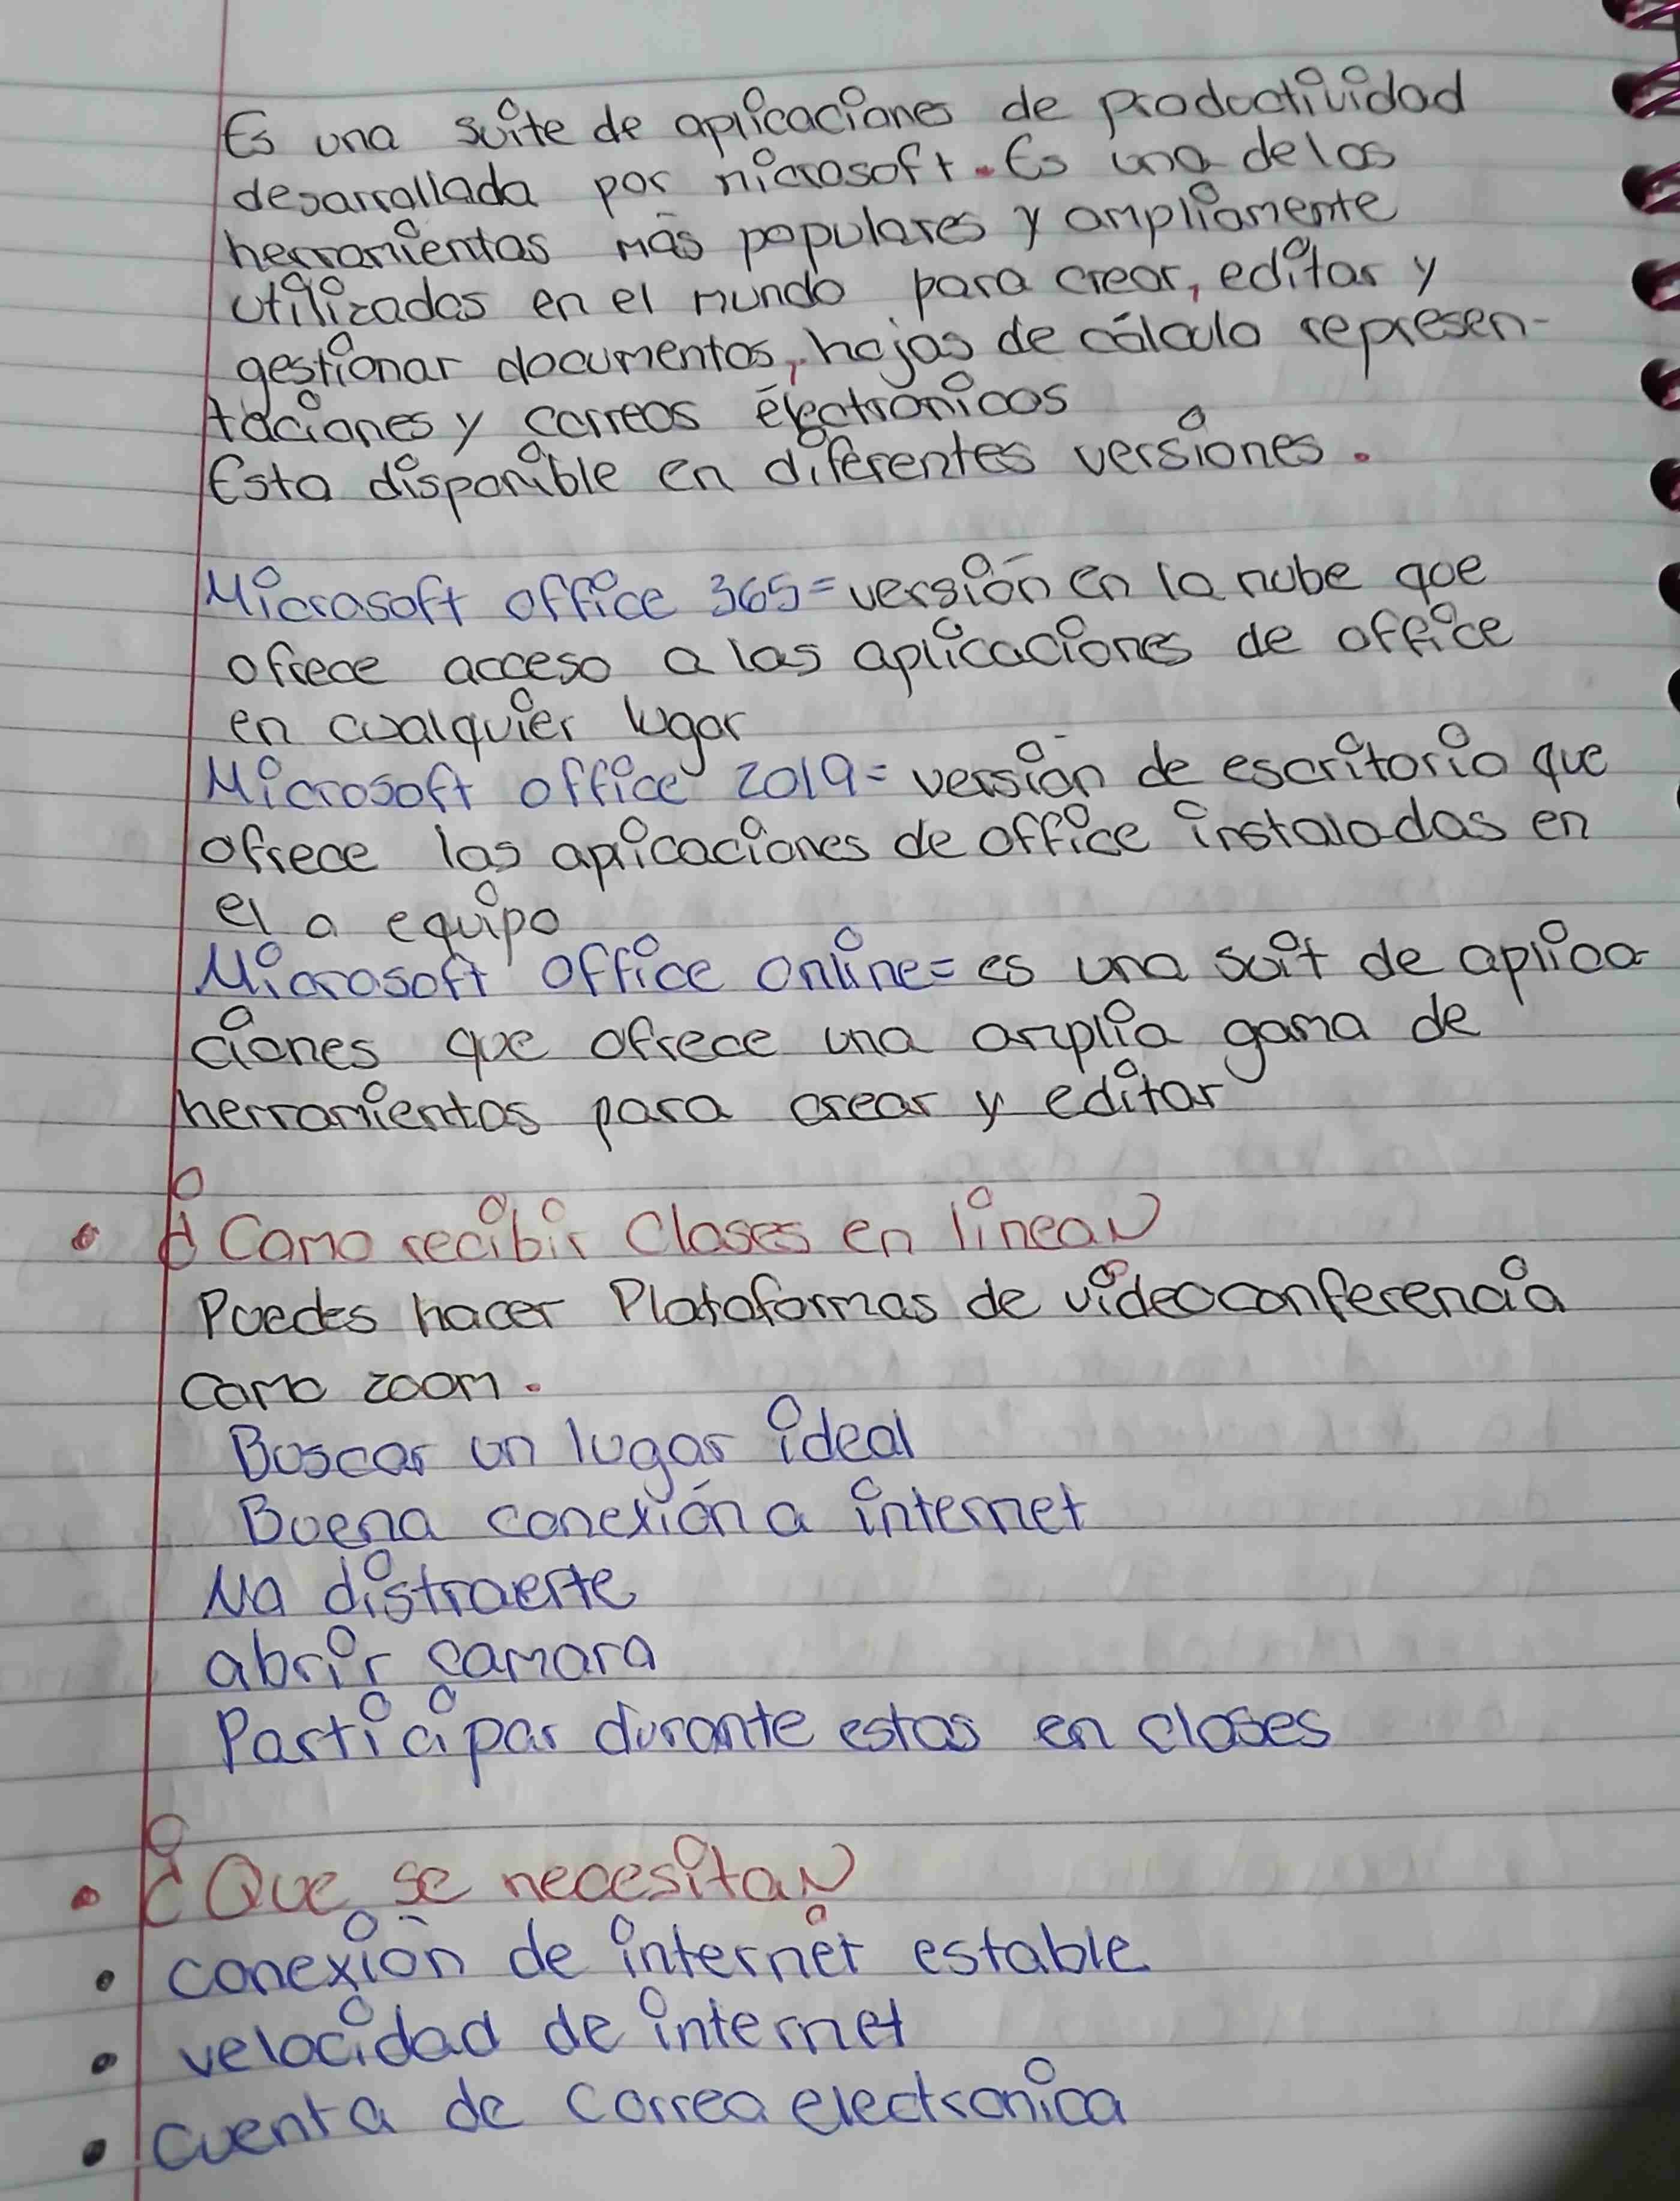 Es una suite de aplicaciones de productividad
desarrollada por microsoft. Es una de las
herramientas más populares y ampliamente
utilizadas en el mundo para crear, editar y
gestionar documentos, hojas de cálculo represen-
taciones y correos electrónicos
Esta disponible en diferentes versiones.
Microsoft office 365= versión en la nube que
ofrece acceso a las aplicaciones de office
en cualquier lugar
Microsoft office 2019= versión de escritorio que
ofrece las aplicaciones de office instaladas en
el a equipo
Microsoft Office Online= es una suit de aplica
ciones que ofrece una amplia gama de
herramientas para crear y editar
• ¿Como recibir Clases en linea?
Puedes hacer Plataformas de videoconferencia
como zoom.
Buscar un lugar ideal
Buena conexión a internet
No distraerte
abrir camara
Participar durante estas en clases
• ¿Que se necesita?
• conexión de internet estable
• velocidad de internet
• cuenta de correo electronica